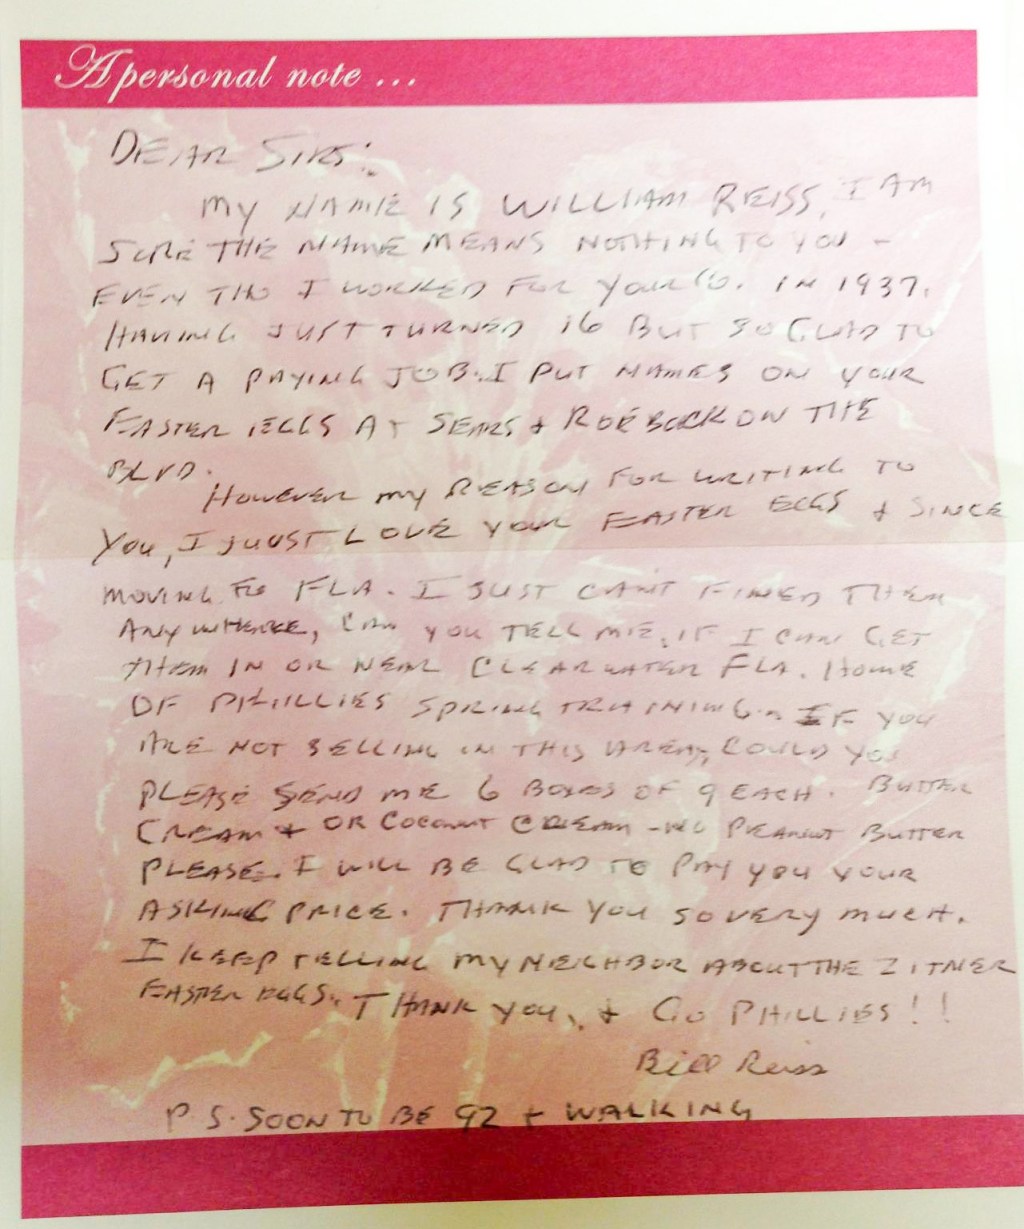 A personal note ...
DEAR SIRS:
MY NAME IS WILLIAM REISS, I AM
SURE THE NAME MEANS NOTHING TO YOU -
EVEN THO I WORKED FOR YOUR CO. IN 1937.
HAVING JUST TURNED 16 BUT SO GLAD TO
GET A PAYING JOB. I PUT NAMES ON YOUR
EASTER EGGS AT SEARS + ROEBUCK ON THE
BLVD.
HOWEVER MY REASON FOR WRITING TO
YOU, I JUUST LOVE YOUR EASTER EGGS + SINCE
MOVING TO FLA. I JUST CAN'T FINED THEM
ANY WHERE, CAN YOU TELL ME, IF I CAN GET
THEM IN OR NEAR CLEARWATER FLA. HOME
OF PHILLIES SPRING TRAINING. IF YOU
ARE NOT SELLING IN THIS AREA, COULD YOU
PLEASE SEND ME 6 BOXES OF 9 EACH. BUTTER
CREAM + OR COCONUT CREAM - NO PEANUT BUTTER
PLEASE. I WILL BE GLAD TO PAY YOU YOUR
ASKING PRICE. THANK YOU SO VERY MUCH.
I KEEP TELLING MY NEIGHBOR ABOUT THE ZITNER
EASTER EGGS. THANK YOU, + GO PHILLIES!!
Bill Reiss
P.S. SOON TO BE 92 + WALKING